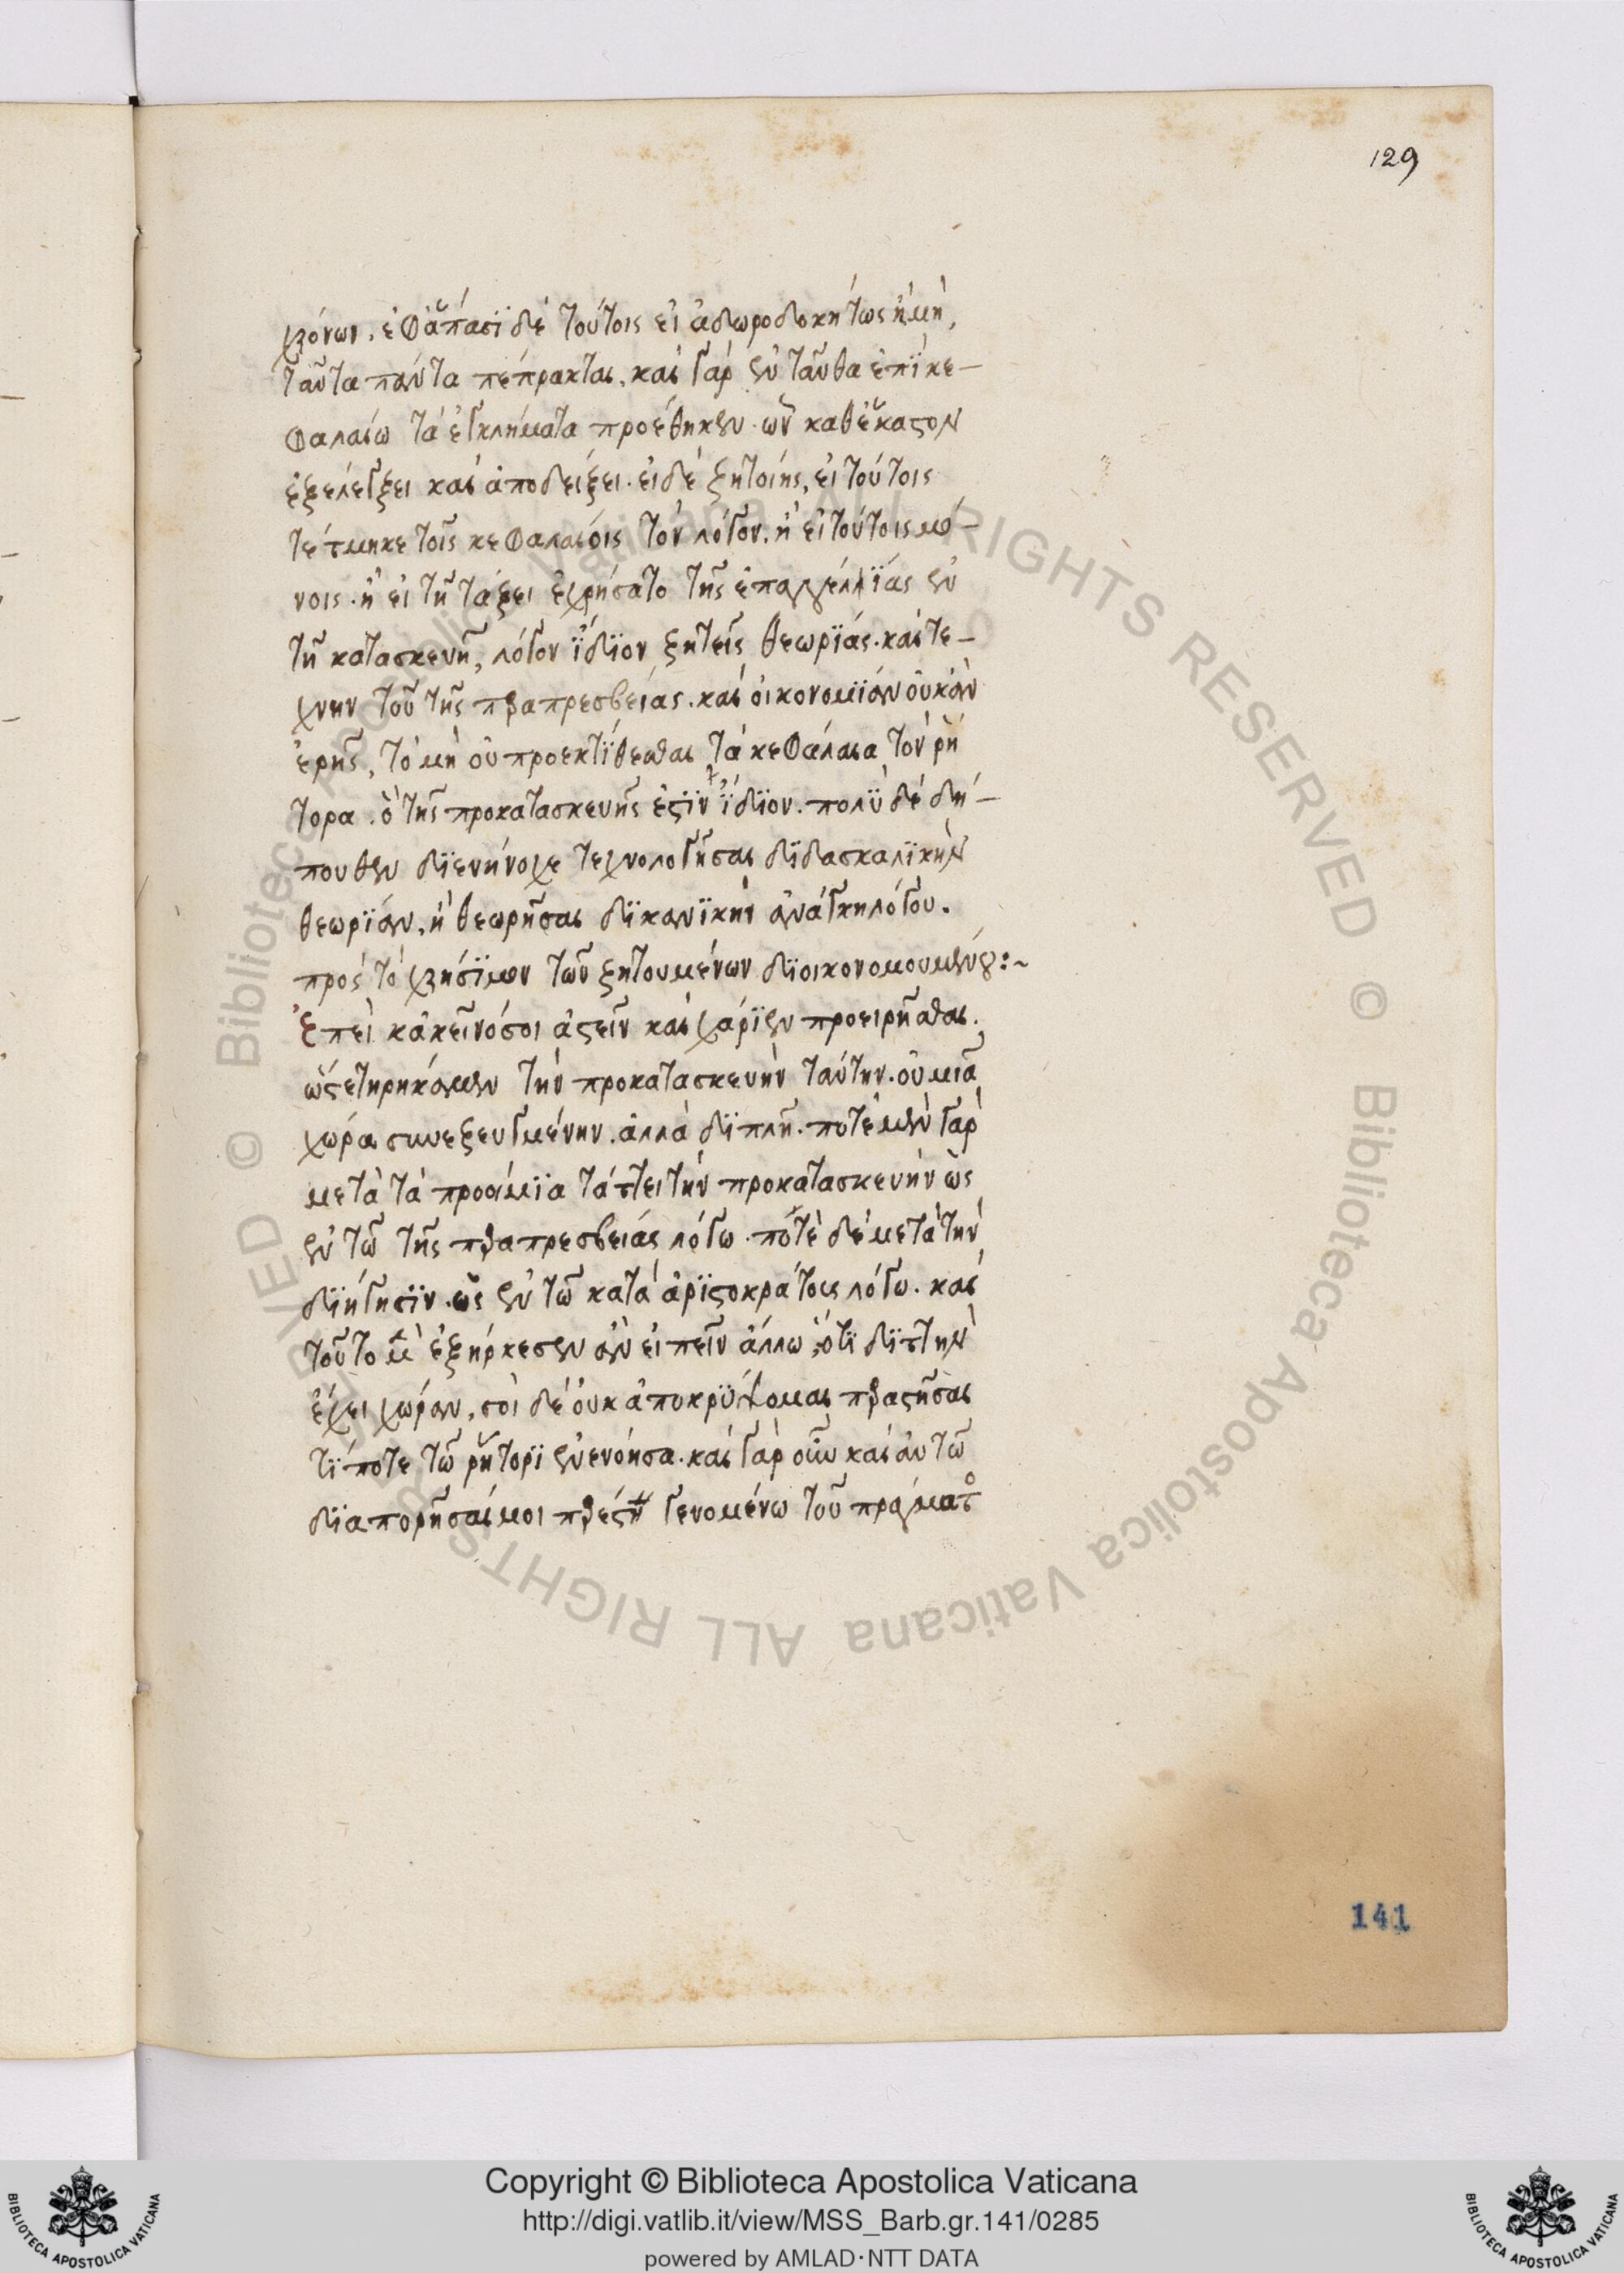 129
χρόνων. ἐφἅπασϊ δὲ τούτοις εἰ ἀδωροδοκήτως ἢ μὴ,
ταῦτα πάντα πέπρακται. καὶ γὰρ ἐνταῦθα ἐπὶ κε-
φαλαίω τὰ ἐγκλήματα προέθηκεν. ὧν καθέκαστον
ἐξελέγξει καὶ ἀποδείξει. εἰ δὲ ζητοίης, εἰ τούτοις
τέτμηκε τοῖς κεφαλαίοις τὸν λόγον. ἢ εἰ τούτοις μό-
νοις. ἢ εἰ τῆ τάξει ἐχρήσατο τῆς ἐπαγγελΐας ἐν
τῆ κατασκευῆ, λόγον ἴδϊον ζητεῖς θεωρΐας. καὶ τέ-
χνην τοῦ τῆς παραπρεσβείας. καὶ οἰκονομΐαν οὐκ ἂν
ἐρῆς, τὸ μὴ οὐ προεκτΐθεσθαι τὰ κεφάλαια τὸν ῥή
τορα. ὃ τῆς προκατασκευῆς ἐστῒν ἴδϊον. πολὺ δὲ δή-
πουθεν δϊενήνοχε τεχνολογῆσαι δϊδασκαλϊκὴν
θεωρΐαν, ἢ θεωρῆσαι δϊκανϊκὴν ἀνάγκη λόγου.
πρὸς τὸ χρήσϊμον τῶν ζητουμένων δϊοικονομουμένου:~
Ἐπεὶ κἀκεῖνό σοι ἀστεῖν καὶ χαρΐεν προειρῆσθαι.
ὡς ἐτηρήκαμεν τὴν προκατασκευὴν ταύτην. οὐ μιᾶ
χώρα συνεζευγμένην. ἀλλὰ δϊπλῆ. ποτὲ μὲν γὰρ
μετὰ τὰ προοίμϊα τάττει τὴν προκατασκευὴν ὡς
ἐν τῶ τῆς παραπρεσβείας λόγω. ποτὲ δὲ μετὰ τὴν
δϊήγησϊν. ὡς ἐν τῶ κατὰ ἀρϊστοκράτους λόγω. καὶ
τοῦτο μὲν ἐξήρκεσεν ἂν εἰπεῖν ἄλλω, ὅτϊ δϊττὴν
ἔχει χώραν, σοὶ δὲ οὐκ ἀποκρύψομαι παραστῆσαι
τΐ ποτε τῶ ῥήτορϊ ἐνενόησα. καὶ γὰρ οὖν καὶ αὐτῶ
δϊαπορῆσαί μοι παρέστη γενομένω τοῦ πράγματος
141
Copyright © Biblioteca Apostolica Vaticana
http://digi.vatlib.it/view/MSS_Barb.gr.141/0285
powered by AMLAD·NTT DATA